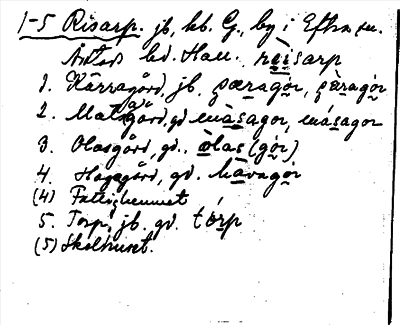 1-5 Risarp. jb, kb. G., by i Eftra sn.
Antas bd. Hall. reisarp
1. Kärragård, jb. çæragór, çàragór
2. Matsagård, gd màsagor, másagor
3. Olasgård, gd., òlas (gór)
4. Hagagård, gd. hàvagór
(4) Fattighemmet
5. Torp, jb. gd. tórp
(5) Skolhuset.